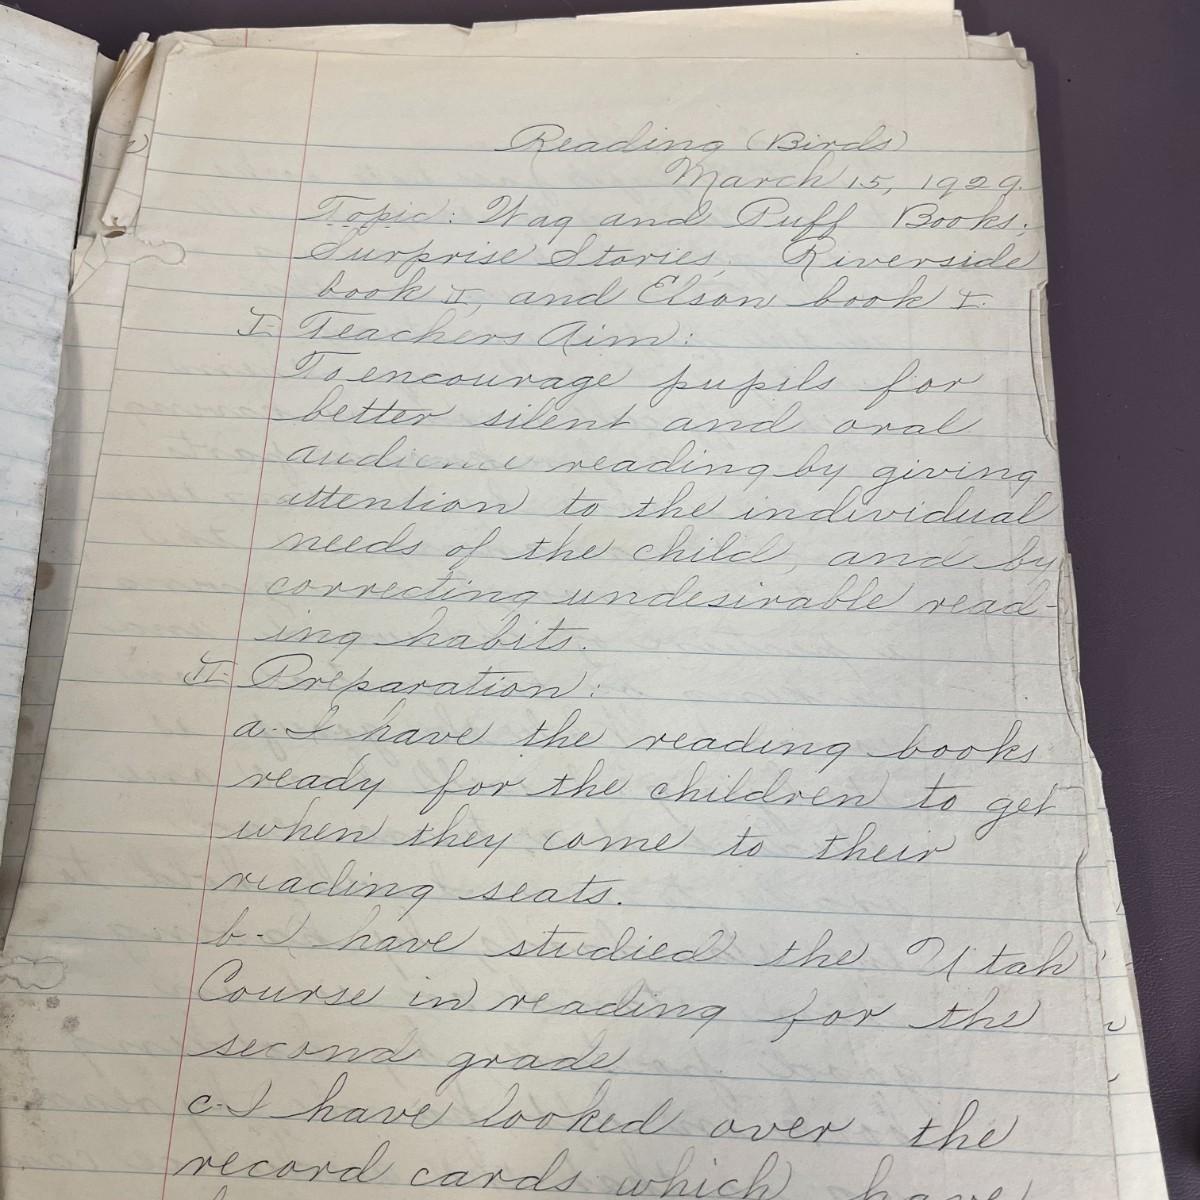 Reading (Birds)
March 15, 1929.
Topic: Wag and Puff Books;
Surprise Stories, Riverside
book II, and Elson book I.
I- Teachers Aim:
To encourage pupils for
better silent and oral
audience reading by giving
attention to the individual
needs of the child, and by
correcting undesirable read-
ing habits.
II- Preparation:
a- I have the reading books
ready for the children to get
when they come to their
reading seats.
b- I have studied the Utah
Course in reading for the
second grade
c- I have looked over the
record cards which have